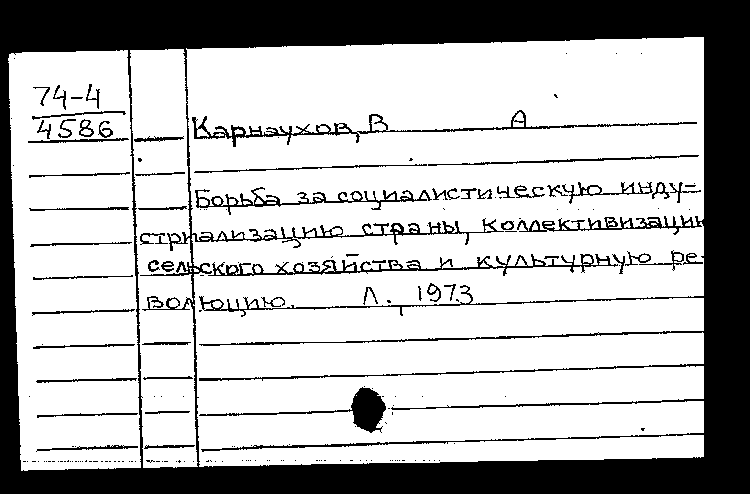 74-4
4586
Карнаухов, В А
Борьба за социалистическую инду-
стриализацию страны, коллективизацию
сельского хозяйства и культурную ре-
волюцию. Л., 1973